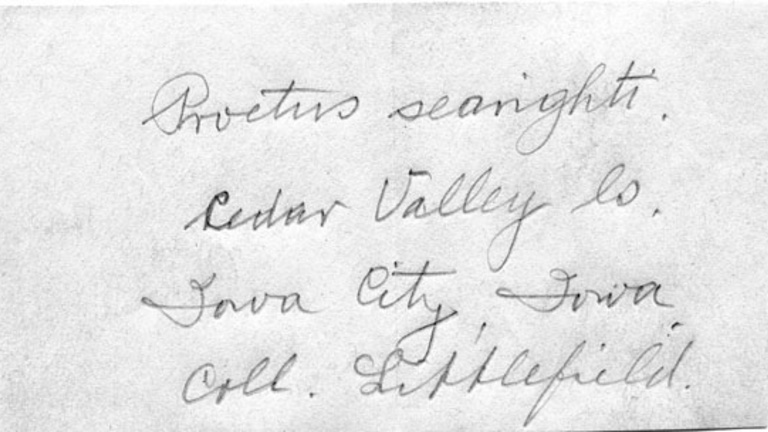 Proetus searighti.
Cedar Valley ls.
Iowa City, Iowa.
Coll. Littlefield.